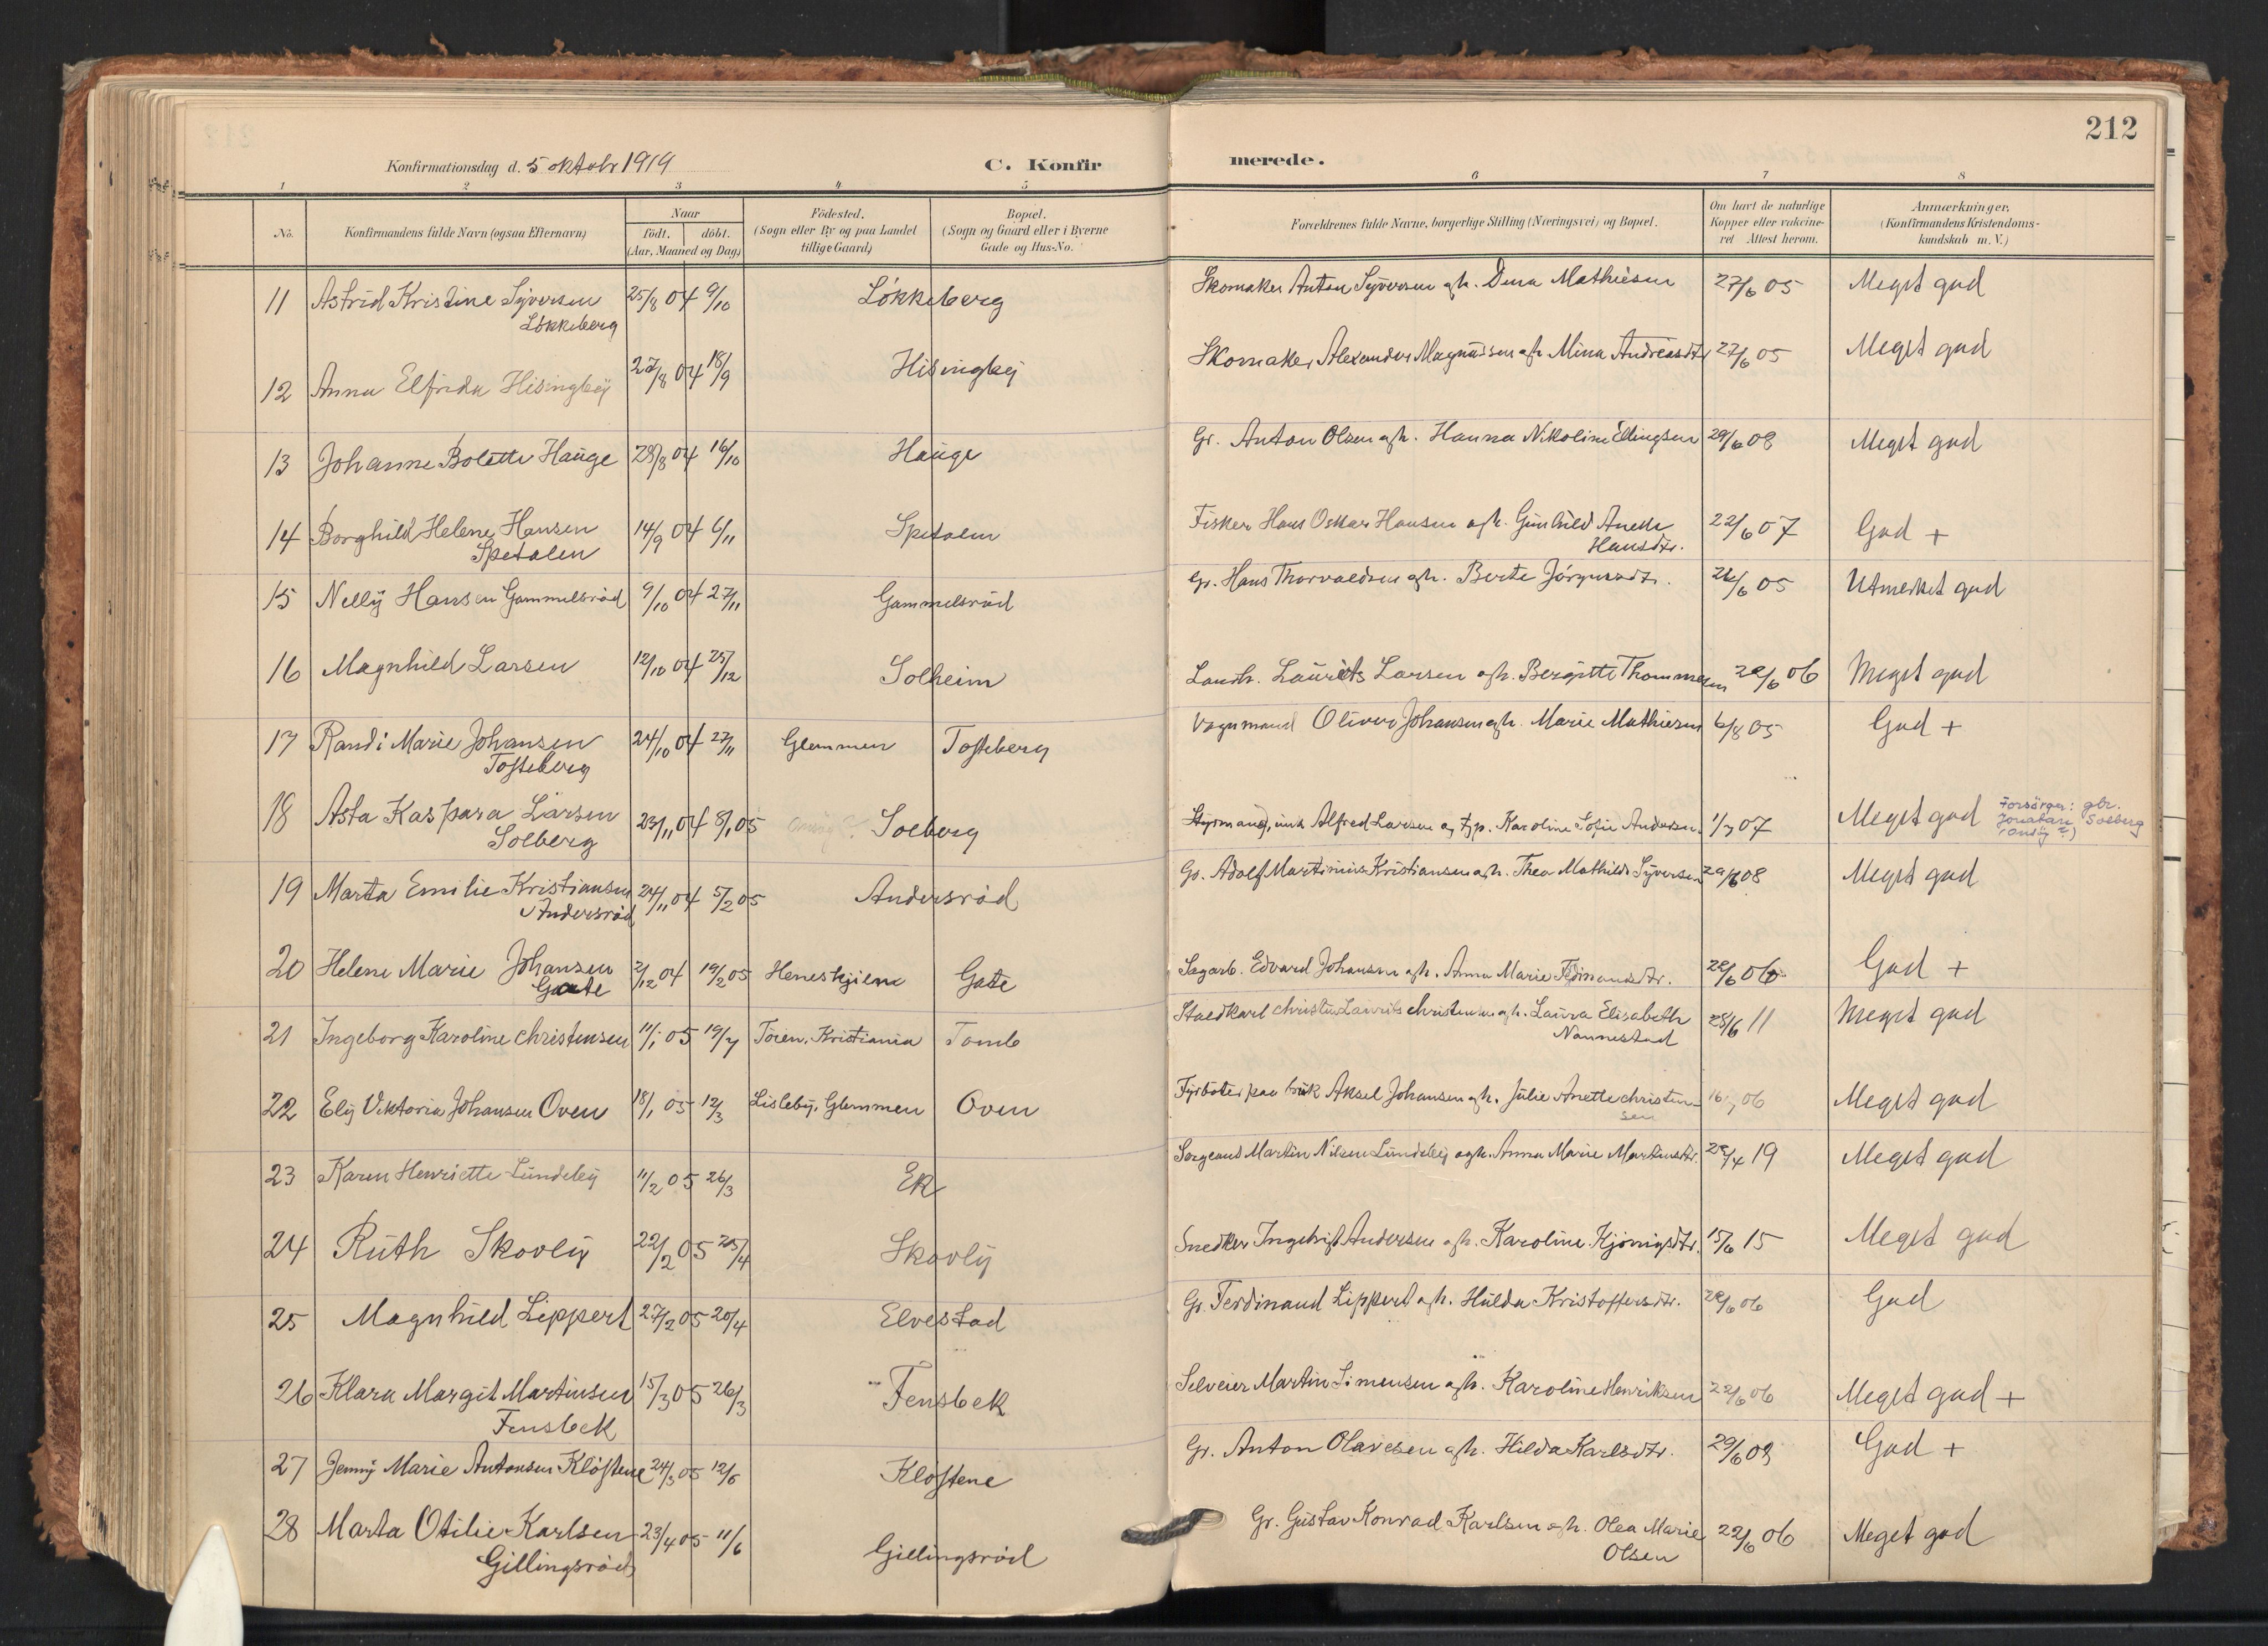 212
Konfirmationsdag d. 5 oktobr 1919
C. Konfir
merede.
1 2 3 4 5 6 7 8
No.
Konfirmandens fulde Navn (ogsaa Efternavn)
Naar
födt. döbt.
(Aar, Maaned og Dag)
Födested.
(Sogn eller By og paa Landet
tillige Gaard)
Bopæl.
(Sogn og Gaard eller i Byerne
Gade og Hus-No.
Forældrenes fulde Navne, borgerlige Stilling (Næringsvei) og Bopæl.
Om havt de naturlige
Kopper eller vakcine-
ret Attest herom.
Anmærkninger.
(Konfirmandens Kristendoms-
kundskab m. V.)
11 Astrid Kristine Syversen 25/8 04 9/10 Løkkeberg Skomaker Anton Syversen og h. Dina Mathiesen 27/6 05 Meget god
Løkkeberg
12 Anna Elfrida Hisingbÿ 27/8 04 18/9 Hisingbÿ Skomaker Alexander Magnussen og h. Mina Andreasdtr 27/6 05 Meget god
13 Johanne Bolette Hauge 28/8 04 16/10 Hauge Gr. Anton Olsen og h. Hanna Nikoline Ellingsen 29/6 08 Meget god
14 Borghild Helene Hansen 14/9 04 6/11 Spetalen Fisker Hans Oskar Hansen og h. Gunhild Anette 22/6 07 God +
Spetalen
Hansdtr.
15 Nellÿ Hansen Gammelsrød 9/10 04 27/11 Gammelsrød Gr. Hans Thorvaldsen og h. Berte Jörgensdtr. 26/6 05 Utmerket god
16 Magnhild Larsen 12/10 04 25/12 Solheim Landh. Laurits Larsen og h. Bergitte Thommesen 22/6 06 Meget god
17 Randi Marie Johansen 24/10 04 27/11 Glemmen Tofteberg Vognmand Oliver Johansen og h. Marie Mathiesen 6/8 05 God +
Tofteberg
18 Asta Kaspara Larsen 23/11 04 8/1 05 Solberg Styrmand, unk Alfred Larsen og tjp. Karoline Sofie Andersen. 1/7 07 Meget god
Solberg
Forsörger: gbr.
Jonatan Solberg
(Onsöy?)
19 Marta Emilie Kristiansen 24/11 04 5/2 05 Andersrød Gr. Adolf Martinius Kristiansen og h. Thea Mathilde Syversen 29/6 08 Meget god
Andersrød
20 Helene Marie Johansen 2/12 04 19/2 05 Heneskjem Gate Sagarb. Edvard Johansen og h. Anna Marie Ferdinandsdtr. 22/6 06 God +
Gate
21 Ingeborg Karoline Christensen 11/1 05 19/7 Töien, Kristiania Tomb Staldkarl Christen Laurits Christensen og h. Laura Elisabeth 28/6 11 Meget god
Nannestad
22 Ely Viktoria Johansen Oven 18/1 05 12/3 Lisleby, Glemmen Oven Fyrböter paa bruk Aksel Johansen og h. Julie Anette Christen- 06 Meget god
sen
23 Karen Henriette Lundeby 11/2 05 26/3 Ek Sergeant Martin Nilsen Lundeby og h. Anna Marie Martinsdtr. 22/4 19 Meget god
24 Ruth Skovly 22/2 05 25/4 Skovly Snedker Ingebrigt Andersen og h. Karoline Kjønigsdtr. 15/6 15 Meget god
25 Magnhild Lippert 27/2 05 20/4 Elvestad Gr. Ferdinand Lippert og h. Hulda Kristoffersdtr. 22/6 06 God
26 Klara Margit Martinsen 15/3 05 26/3 Fensbek Selveier Martin Simensen og h. Karoline Henriksen 22/6 06 Meget god +
Fensbek
27 Jenny Marie Antonsen Kløftene 24/3 05 12/6 Kloftene Gr. Anton Olavesen og h. Hilda Karlsdtr. 29/6 08 God +
28 Marta Otilie Karlsen 23/4 05 11/6 Gillingsrød Gr. Gustav Konrad Karlsen og h. Olea Marie 22/6 06 Meget god
Gillingsrød
Olsen